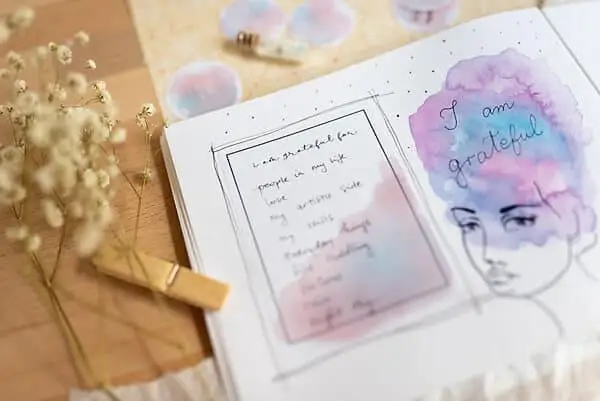 i am grateful for
people in my life
love
my artistic side
my skills
Everyday things
I am
grateful